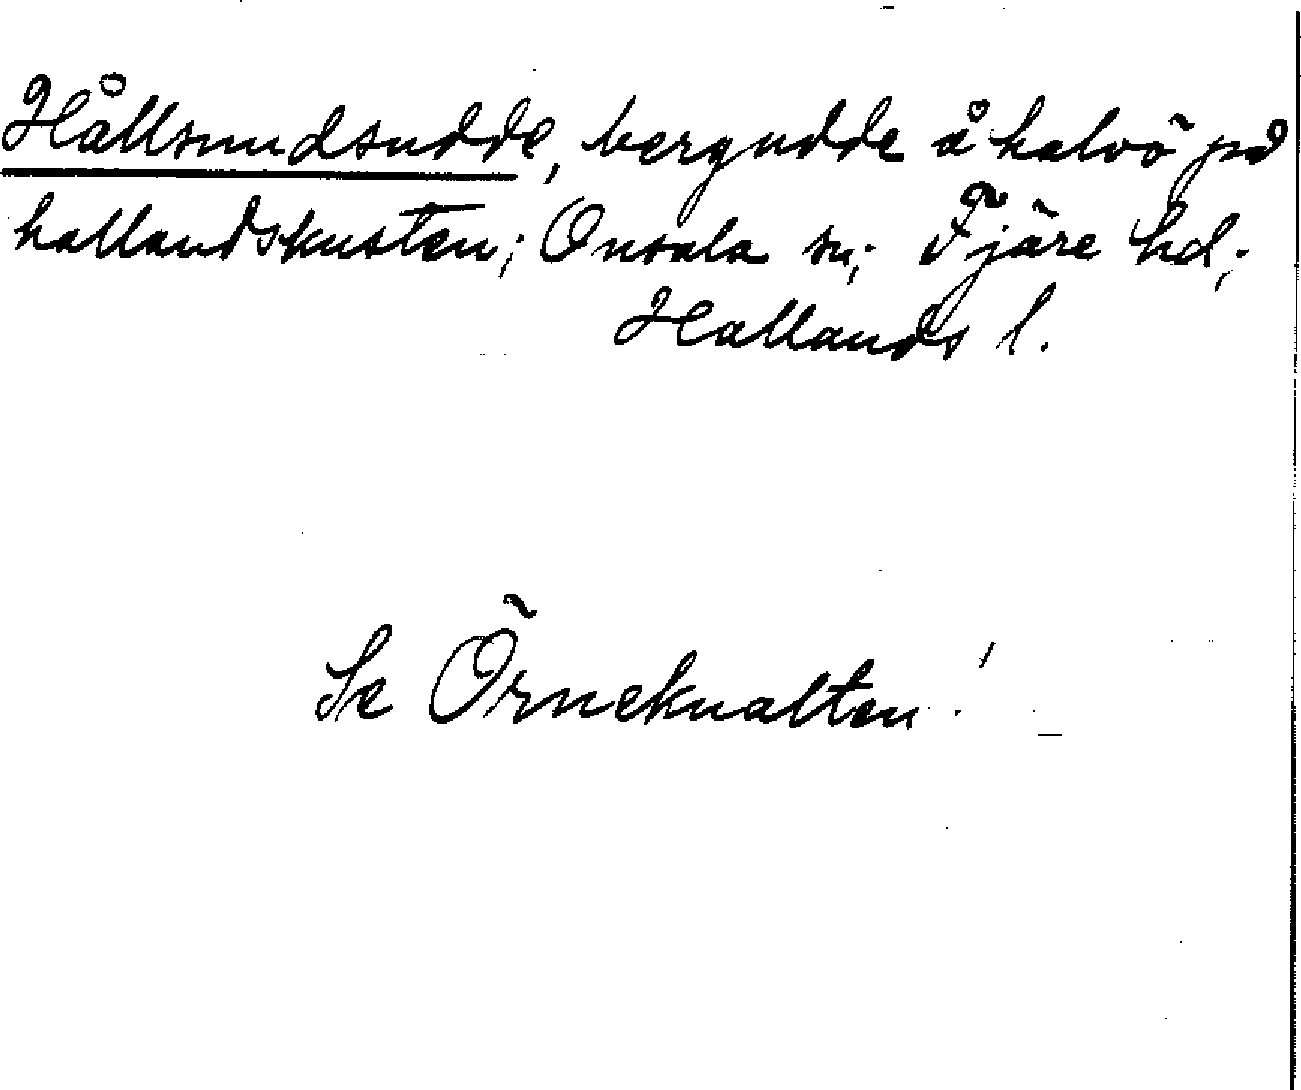 Hållsundsudde, bergudde å halvö på
hallandskusten; Onsala sn; Fjäre hd;
Hallands l.
Se Örneknalten!